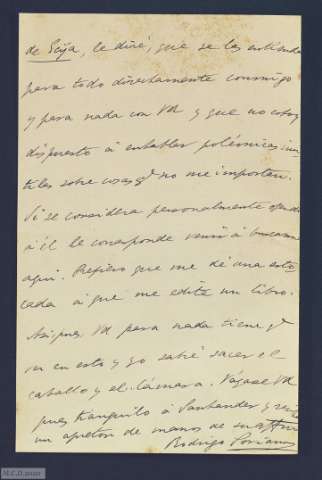 de Eçija, le diré, que se las entienda
para todo directamente conmigo
y para nada con Vd y que no estoy
dispuesto á entablar polémicas inu-
tiles sobre cosas qe no me importan.
Si se considera personalmente ofendido
á él le corresponde venir á buscarme
aqui. Prefiero que me dé una esto-
cada á que me edite un libro.
Asi pues Vd para nada tiene qe
ver en esto y yo sabré sacar el
caballo y el
Vayase Vd
pues tranquilo á Santander y reciba
un apreton de manos de su affmo
Rodrigo Soriano
M.C.D. 2022